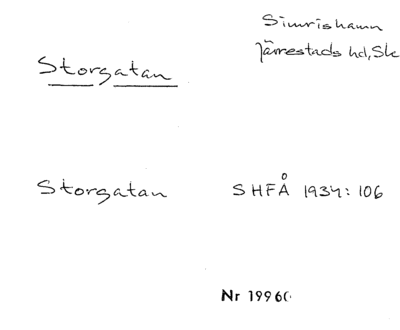 Simrishamn
Järrestads hd, Sk
Storgatan
Storgatan SHFÅ 1934: 106
Nr